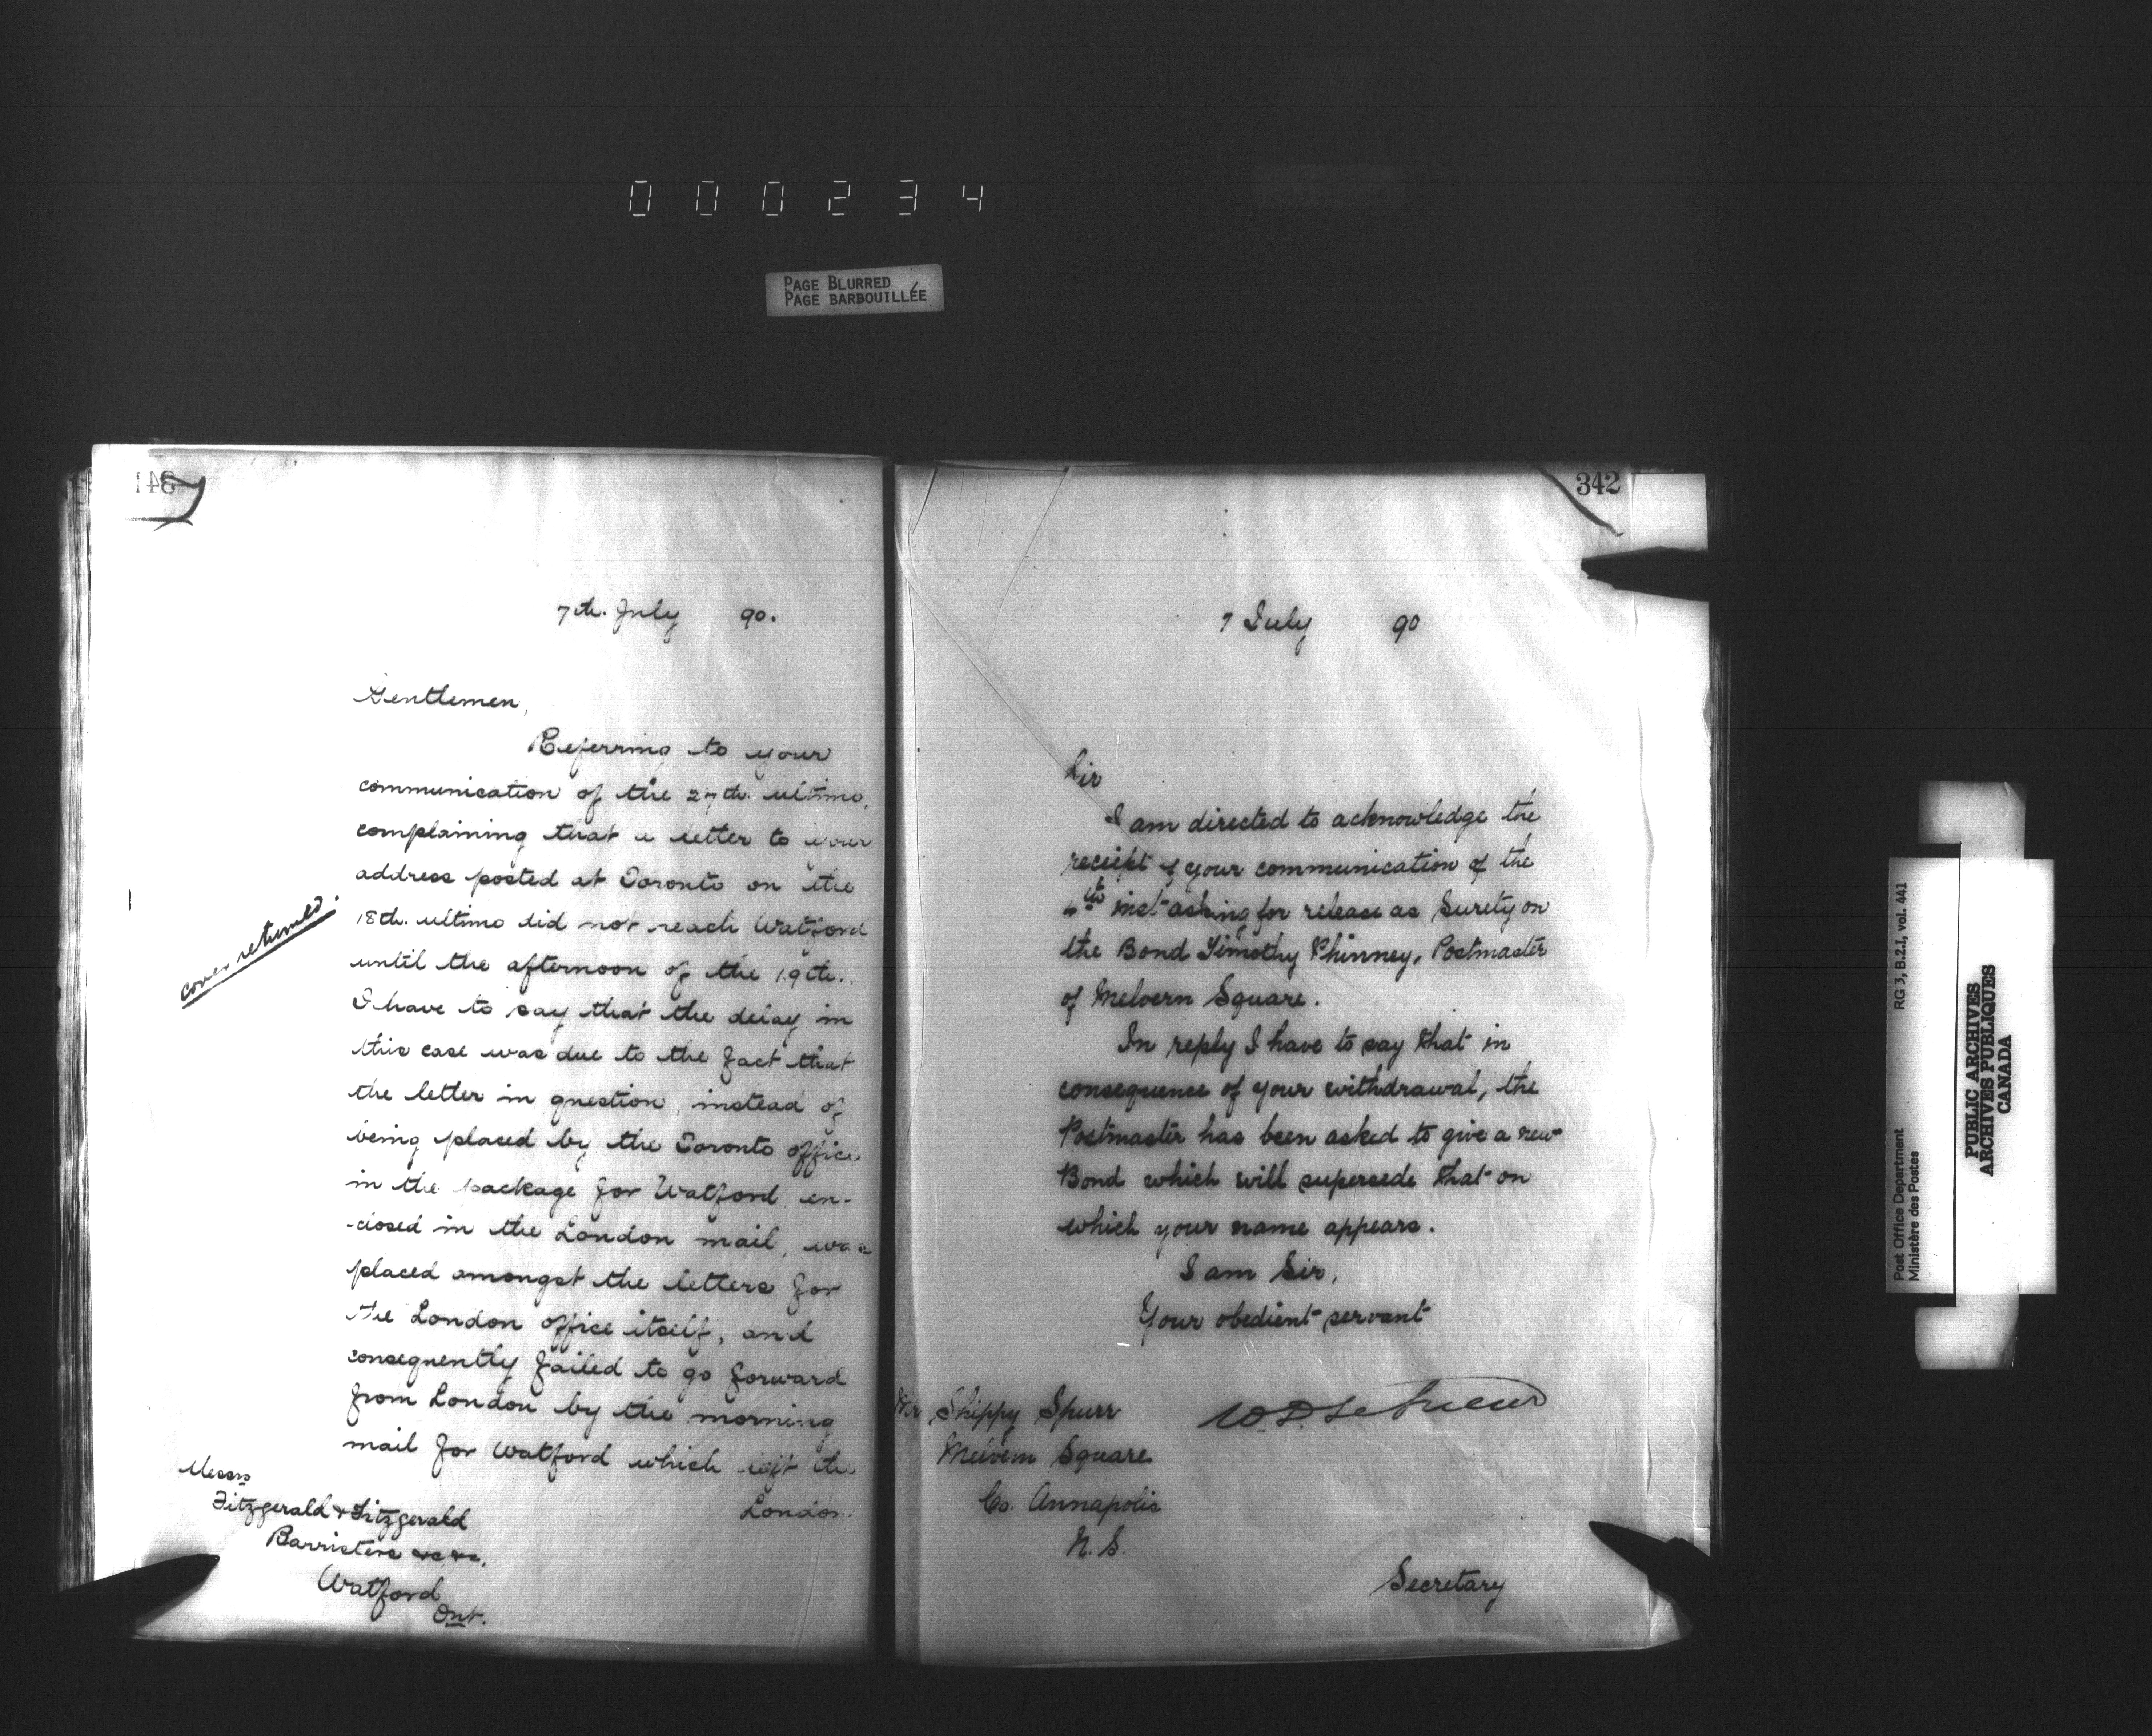 000234
PAGE BLURRED
PAGE BARBOUILLÉE
341
7th. July 90.
Gentlemen,
Referring to your
communication of the 27th. ultimo,
complaining that a letter to your
address posted at Toronto on the
18th. ultimo did not reach Watford
until the afternoon of the 19th.
I have to say that the delay in
this case was due to the fact that
the letter in question, instead of
being placed by the Toronto office
in the package for Watford en-
-closed in the London mail, was
placed amongst the letters for
the London office itself, and
consequently failed to go forward
from London by the morning
mail for Watford which left the
London
cover returned.
Messrs
Fitzgerald & Fitzgerald
Barristers &c &c.
Watford
Ont.
342
7 July 90
Sir
I am directed to acknowledge the
receipt of your communication of the
4th inst asking for release as Surety on
the Bond Timothy Phinney, Postmaster
of Melvern Square.
In reply I have to say that in
consequence of your withdrawal, the
Postmaster has been asked to give a new
Bond which will supersede that on
which your name appears.
I am Sir,
Your obedient servant
W. D. LeSueur
Mr Shippy Spurr
Melvern Square
Co. Annapolis
N. S.
Secretary
Post Office Department
Ministère des Postes
RG 3, B.2.I, vol. 441
PUBLIC ARCHIVES
ARCHIVES PUBLIQUES
CANADA